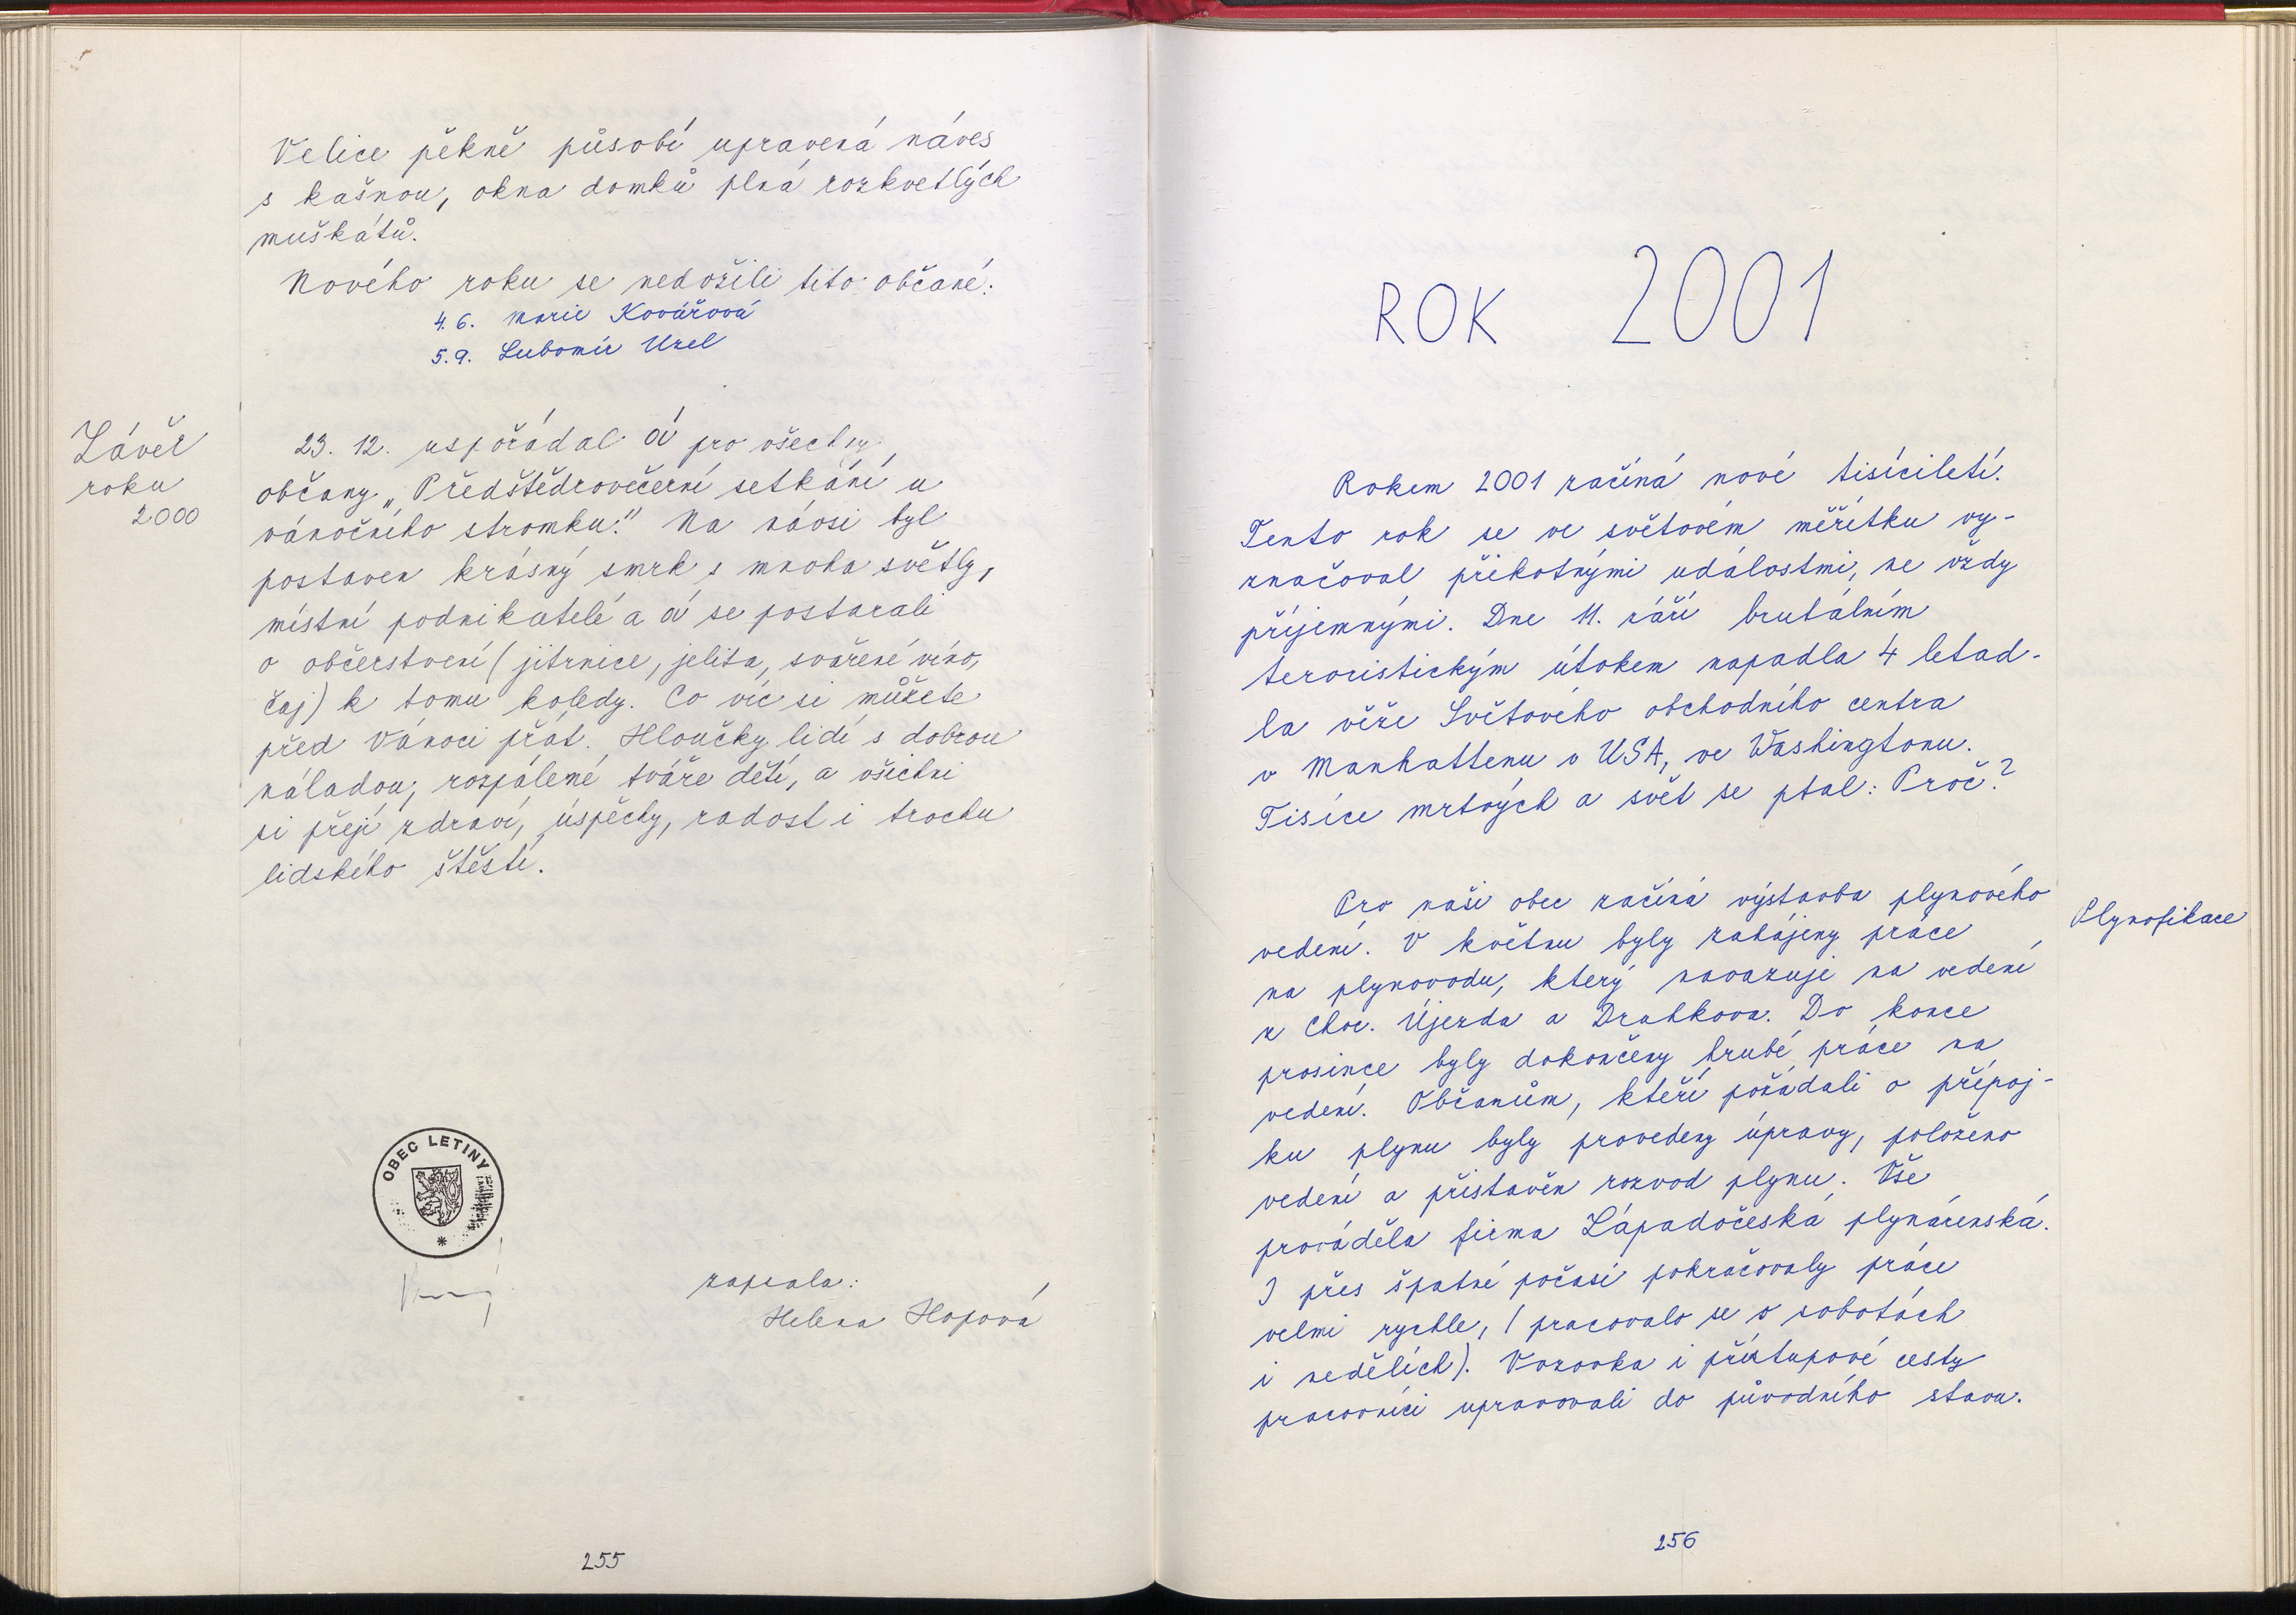 Velice pěkně působí upravená náves
s kašnou, okna domků plná rozkvetlých
muškátů.
Nového roku se nedožili tito občané:
4. 6. Marie Kovářová
5. 9. Lubomír Uzel
Závěr
roku
2000
23. 12. uspořádal OÚ pro všechny
občany „Předštědrovečerní setkání u
vánočního stromku." Na návsi byl
postaven krásný smrk s mnoha světly,
místní podnikatelé a OÚ se postarali
o občerstvení (jitrnice, jelita, svařené víno,
čaj) k tomu koledy. Co víc si můžete
před Vánoci přát. Hloučky lidí s dobrou
náladou, rozpálené tváře dětí, a všichni
si přejí zdraví, úspěchy, radost i trochu
lidského štěstí.
OBEC LETINY
zapsala:
Helena Hopová
255
ROK 2001
Rokem 2001 začíná nové tisíciletí.
Tento rok se ve světovém měřítku vy-
značoval překotnými událostmi, ne vždy
příjemnými. Dne 11. září brutálním
teroristickým útokem napadla 4 letad-
la věže Světového obchodního centra
v Manhattenu v USA, ve Washingtonu.
Tisíce mrtvých a svět se ptal: Proč?
Pro naši obec začíná výstavba plynového
vedení. V květnu byly zahájeny práce
na plynovodu, který navazuje na vedení
z Choc. Újezda a Drahkova. Do konce
prosince byly dokončeny hrubé práce na
vedení. Občanům, kteří požádali o přípoj-
ku plynu byly provedeny úpravy, položeno
vedení a přistavěn rozvod plynu. Vše
prováděla firma Západočeská plynárenská.
I přes špatné počasí pokračovaly práce
velmi rychle, (pracovalo se o sobotách
i nedělích). Vozovka i přístupové cesty
pracovníci upravovali do původního stavu.
Plynofikace
256